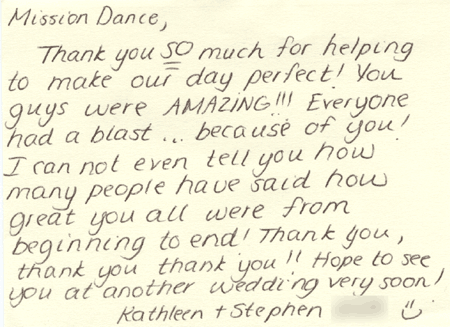 Mission Dance,
Thank you SO much for helping
to make our day perfect! You
guys were AMAZING!!! Everyone
had a blast... because of you!
I can not even tell you how
many people have said how
great you all were from
beginning to end! Thank you,
thank you thank you!! Hope to see
you at another wedding very soon!
Kathleen + Stephen